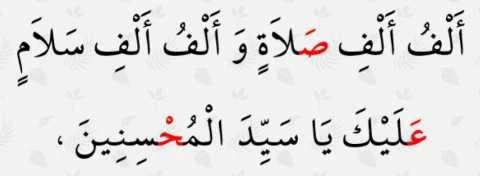 أَلْفُ أَلْفِ صَلاَةٍ وَ أَلْفُ أَلْفِ سَلاَمٍ
عَلَيْكَ يَا سَيِّدَ الْمُحْسِنِينَ ،